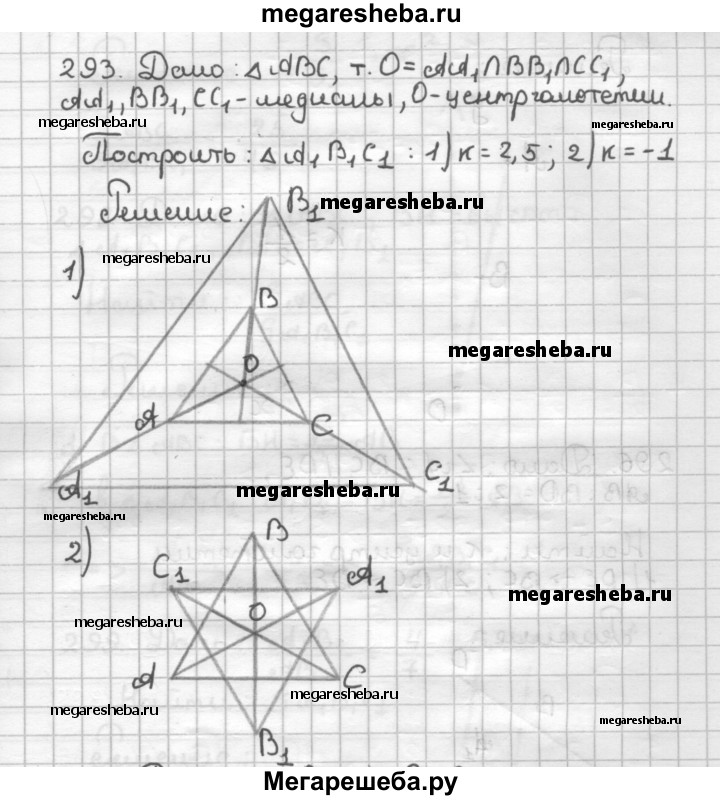 megaresheba.ru
293. Дано: △ABC, т. O = AA₁∩BB₁∩CC₁,
AA₁, BB₁, CC₁ - медианы, O - центр гомотетии.
megaresheba.ru megaresheba.ru
Построить: △A₁B₁C₁ : 1) k = 2,5; 2) k = -1
Решение:
B₁ megaresheba.ru
1) megaresheba.ru
B
megaresheba.ru
O
A C
C₁
A₁ megaresheba.ru
megaresheba.ru
2) B
C₁ A₁
megaresheba.ru
O
megaresheba.ru
A C
megaresheba.ru
megaresheba.ru
megaresheba.ru
B₁
Мегарешеба.ру